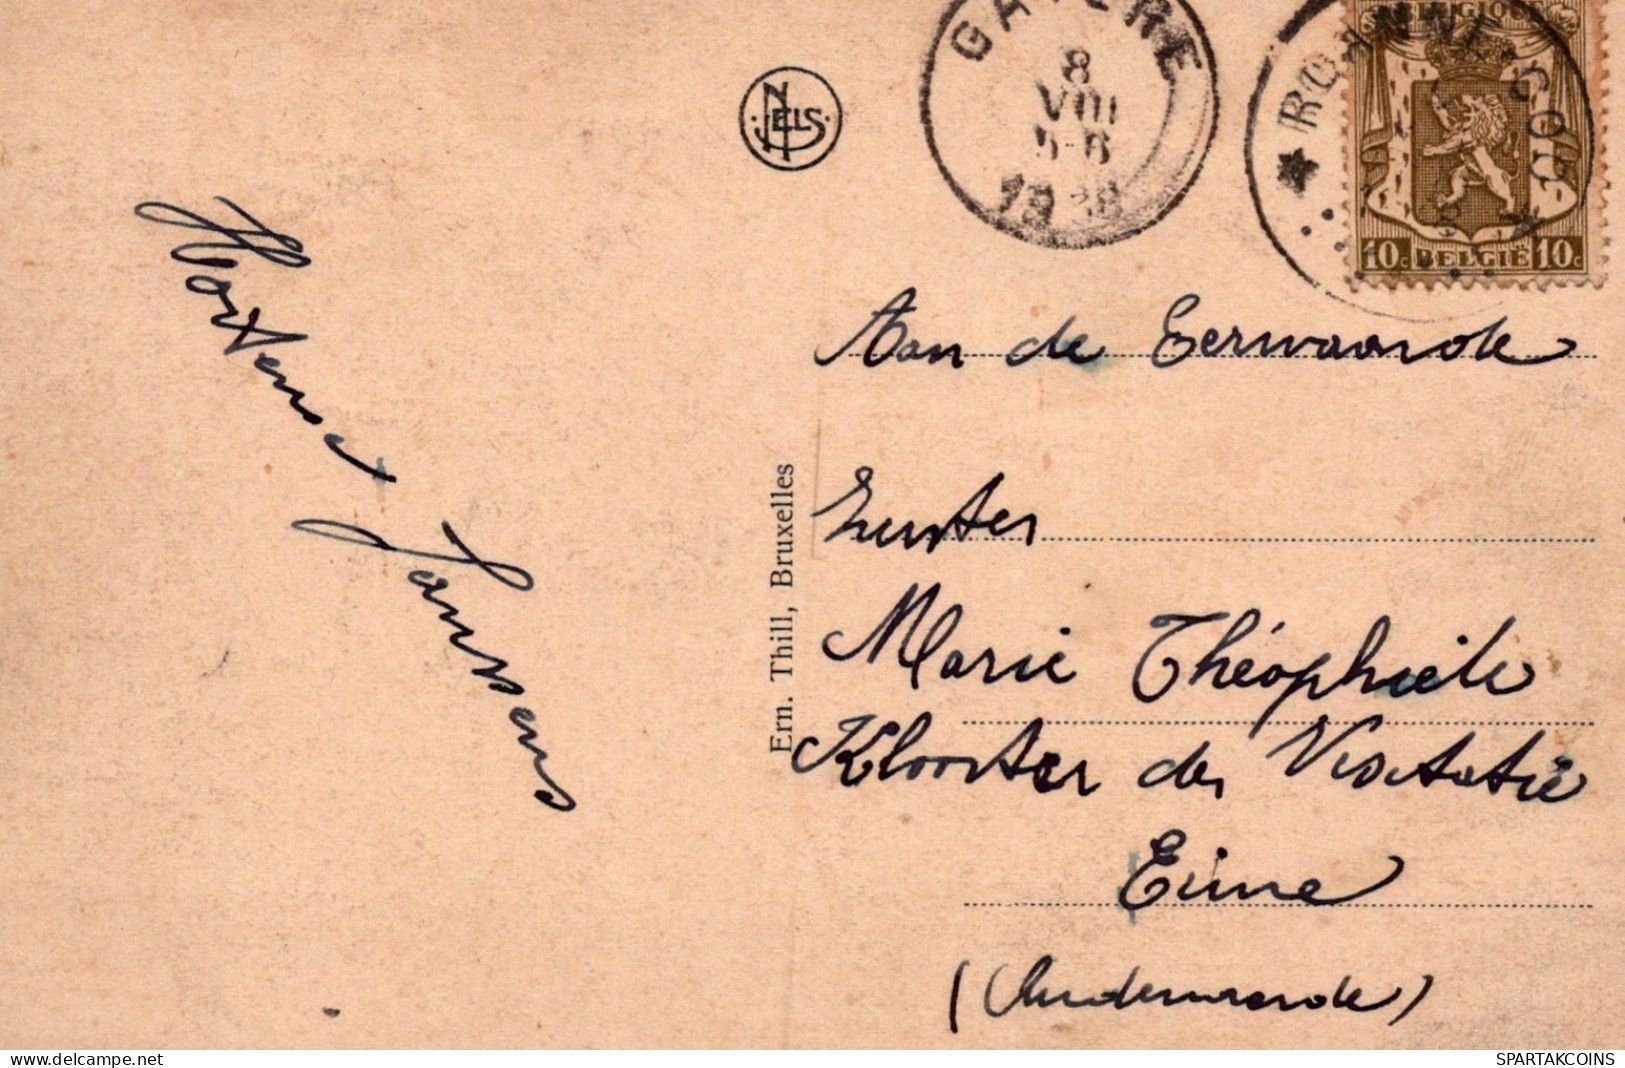 GAVERE
8
VIII
1938
BELGIQUE
10c BELGIË 10c
NELS
Hortense Janssens
Ern. Thill, Bruxelles
Aan de Eerwaarde
Zuster
Marie Théophiele
Klooster der Visitatie
Eine
(Audenaarde)
delcampe.net
SPARTAKCOINS